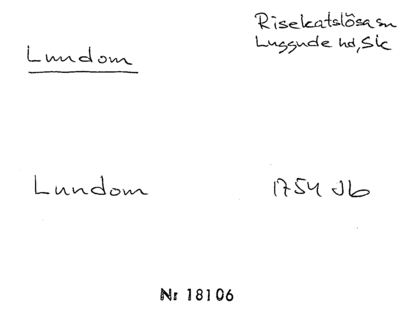 Risekatslösa sn
Luggude hd, Sk
Lundom
Lundom 1754 Jb
Nr 18106